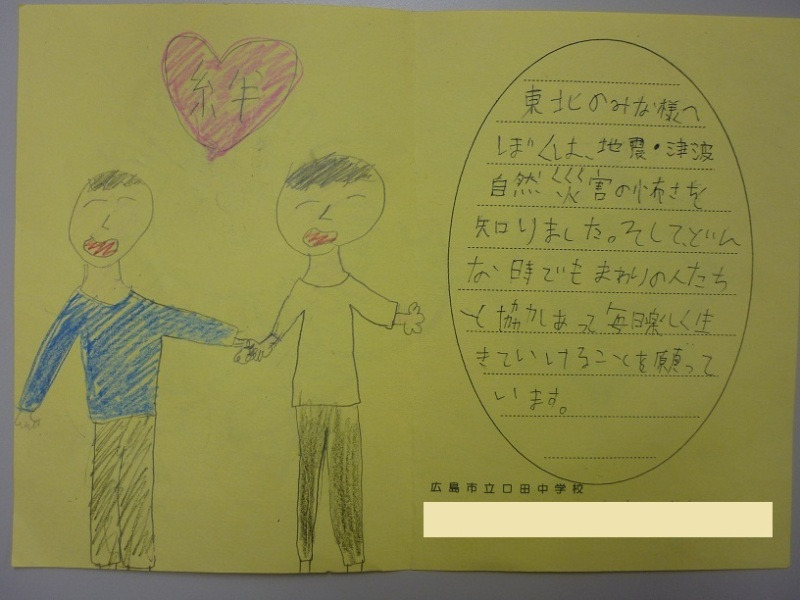 絆
東北のみな様へ
ぼくは、地震・津波
自然災害の怖さを
知りました。そして、どん
な時でもまわりの人たち
と協力しあって毎日楽しく生
きていけることを願って
います。
広島市立口田中学校